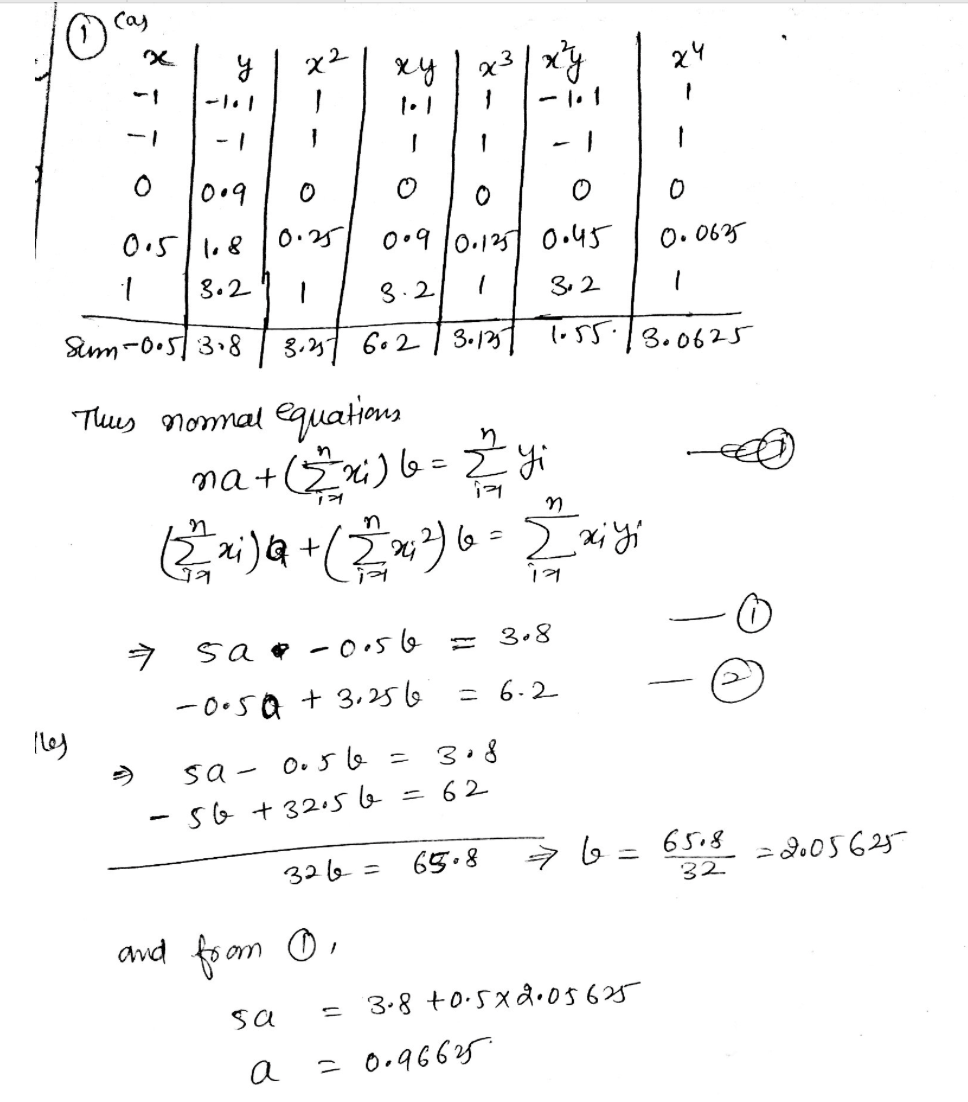 ① (a)
x | y | x² | xy | x³ | x²y | x⁴
-1 | -1.1 | 1 | 1.1 | 1 | -1.1 | 1
-1 | -1 | 1 | 1 | 1 | -1 | 1
0 | 0.9 | 0 | 0 | 0 | 0 | 0
0.5 | 1.8 | 0.25 | 0.9 | 0.125 | 0.45 | 0.0625
1 | 3.2 | 1 | 3.2 | 1 | 3.2 | 1
Sum -0.5 | 3.8 | 3.25 | 6.2 | 3.125 | 1.55 | 3.0625
Thus normal equations
na + (∑ⁿᵢ₌₁ xᵢ) b = ∑ⁿᵢ₌₁ yᵢ
(∑ⁿᵢ₌₁ xᵢ) a + (∑ⁿᵢ₌₁ xᵢ²) b = ∑ⁿᵢ₌₁ xᵢ yᵢ
⇒ 5a - 0.5b = 3.8 — ①
-0.5a + 3.25b = 6.2 — ②
⇒ 5a - 0.5b = 3.8
- 5b + 32.5b = 62
32b = 65.8 ⇒ b = 65.8/32 = 2.05625
and from ①,
5a = 3.8 + 0.5 x 2.05625
a = 0.96625